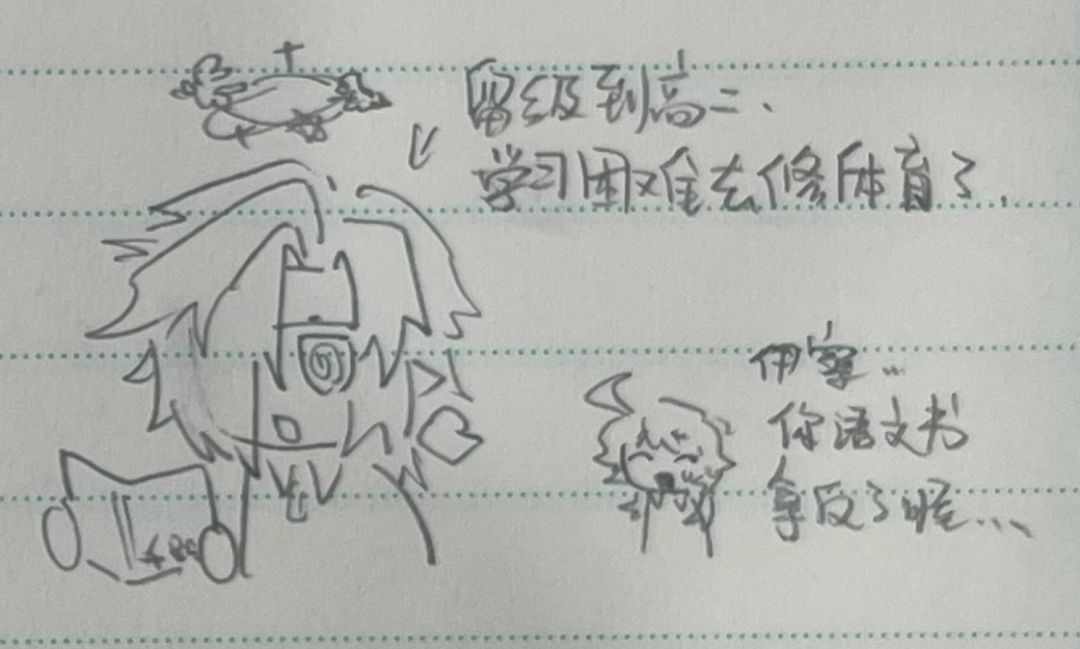 留级到高二、
学习困难去修体育了.
伊寧...
你语文书
拿反了喔...
ABC